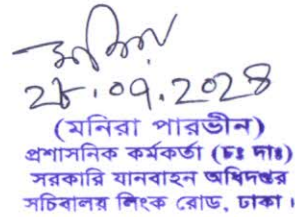 মনিরা
২৮.০৭.২০২৪
(মনিরা পারভীন)
প্রশাসনিক কর্মকর্তা (চঃ দাঃ)
সরকারি যানবাহন অধিদপ্তর
সচিবালয় লিংক রোড, ঢাকা।